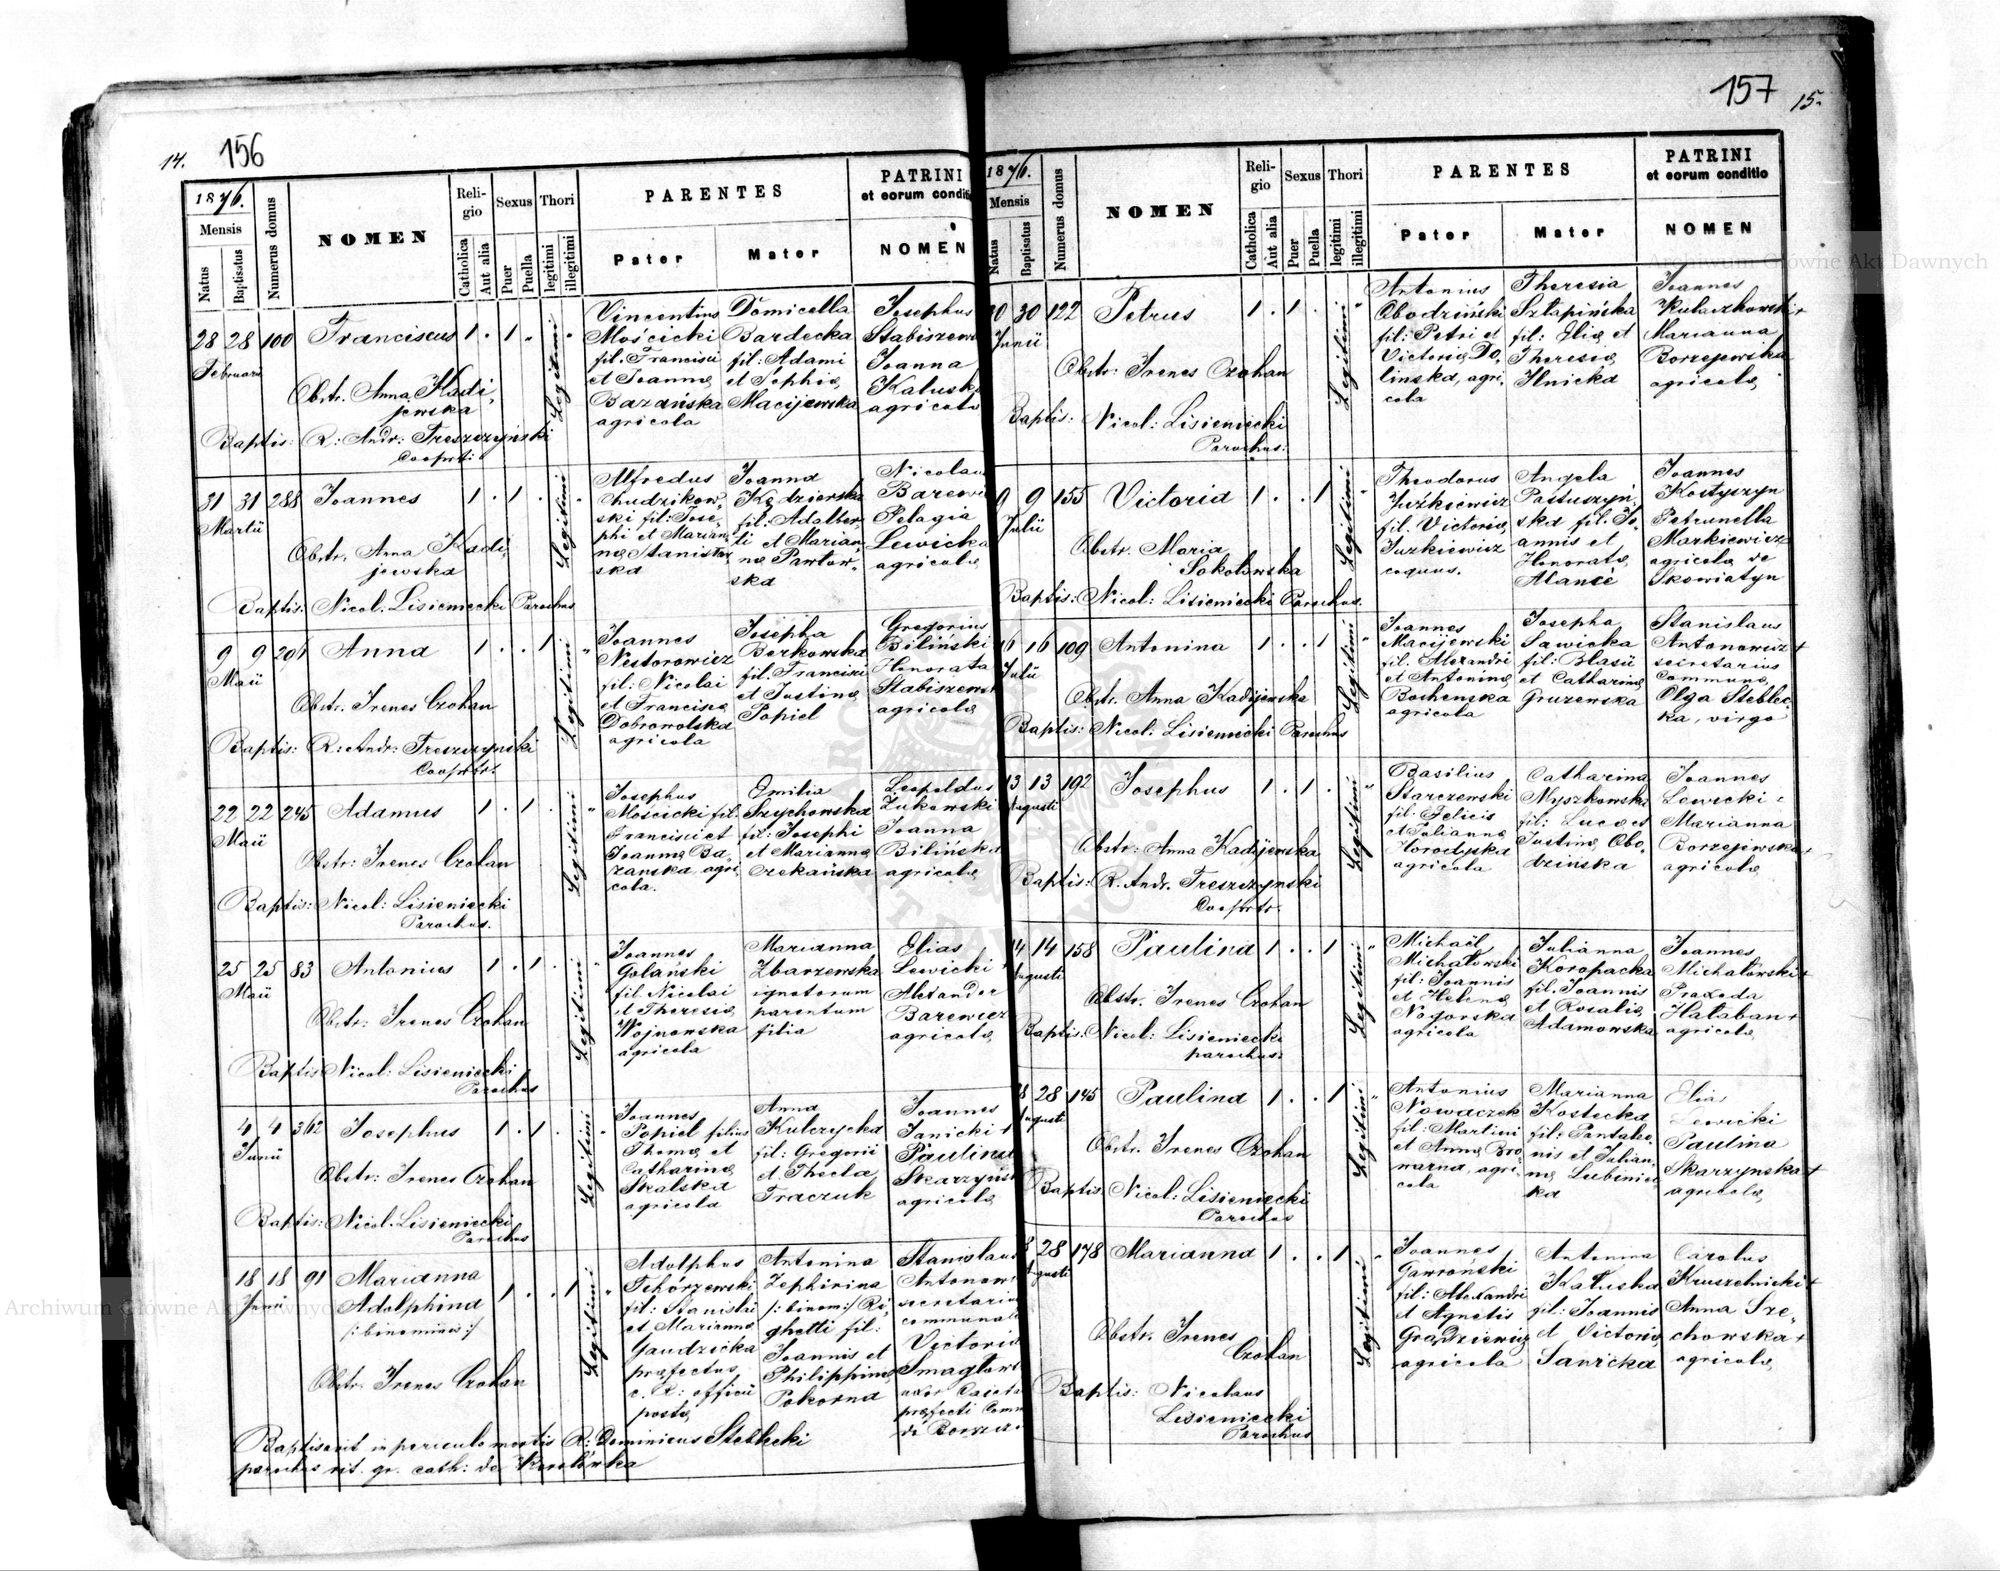 14.
156
1876.
Mensis
Natus
Baptisatus
Numerus domus
NOMEN
Religio
Catholica
Aut alia
Sexus
Puer
Puella
Thori
legitimi
illegitimi
PARENTES
Pater
Mater
PATRINI
et eorum conditio
NOMEN
28 28 100 Franciscus 1 . 1 "
Februarii
Obstr. Anna Kadi,
jewska
Baptis: R: Andr: Treszczyński
Cooprt:
Legitimi
Vincentius
Mościcki
fil. Francisci
et Joannæ
Bazańska
agricola
Domicella
Bardecka
fil: Adami
et Sophiæ
Macijewska
Josephus
Stabiszew
Joanna
Kaluska
agricolæ
31 31 288 Joannes 1 . 1 .
Martii
Obstr. Anna Kadi,
jewska
Baptis: Nicol. Lisieniecki Parochus
Legitimi
Alfredus
Chudzikow,
ski fil: Jose,
phi et Marian,
næ Stanisław
ska
Joanna
Kędzierska
fil: Adalber,
ti et Marian,
næ Pawłow,
ska
Nicolaus
Barewi
Pelagia
Lewicka
agricolæ
9 9 201 Anna 1 . . 1
Maii
Obstr. Irenes Czohan
Baptis: R: Andr: Treszczynski
Cooprtr.
Legitimi
Joannes
Nestorowicz
fil: Nicolai
et Franciscæ
Dobrowolska
agricola
Josepha
Berkowska
fil. Francisci
et Justinæ
Popiel
Gregorius
Biliński
Honorata
Stabiszewsk
agricolæ
22 22 245 Adamus 1 . 1 .
Maii
Obstr: Irenes Czohan
Baptis: Nicol: Lisieniecki
Parochus.
Legitimi
Josephus
Mościcki fil.
Francisci et
Joannæ Ba,
zanska agri,
cola.
Emilia
Szychowska
fil: Josephi
et Mariannæ
Czekańska
Leopoldus
Żukowski
Joanna
Bilińska
agricolæ
25 25 83 Antonius 1 . 1 .
Maii
Obstr: Irenes Czohan
Baptis Nicol: Lisieniecki
Parochus
Legitimi
Joannes
Golański
fil. Nicolai
et Theresiæ
Wojnowska
agricola
Marianna
Zbarzewska
ignotorum
parentum
filia
Elias
Lewicki
Alexander
Barewicz
agricolæ
4 4 362 Josephus 1 . 1 .
Junii
Obstr: Irenes Czohan
Baptis: Nicol. Lisieniecki
Parochus
Legitimi
Joannes
Popiel filius
Thomæ et
Catharinæ
Skalska
agricola
Anna
Kulczycka
fil: Gregorii
et Thecla
Traczuk
Joannes
Janicki +
Paulina
Skarzyńsk
agricolæ
18 18 91 Marianna 1 . . 1
Junii
Adolphina
/: binomina :/
Obstr. Irenes Czohan
Legitimi
Adolphus
Tchórzewski
fil: Stanislai
et Mariannæ
Gaudzicka
præfectus
c. R: officii
postæ
Antonina
Zephirina
/: binom :/ Ri,
ghetti fil:
Joannis et
Philippinæ
Pokorna
Stanislaus
Antonow
secretarius
communal
Victoria
Smagłow
uxor Cajeta
præfecti Comm
de
Baptisavit in periculo mortis R: Dominicus Steblecki
parochus rit. gr. cath: de Korolówka
157
15.
1876.
Mensis
Natus
Baptisatus
Numerus domus
NOMEN
Religio
Catholica
Aut alia
Sexus
Puer
Puella
Thori
legitimi
illegitimi
PARENTES
Pater
Mater
PATRINI
et eorum conditio
NOMEN
30 30 122 Petrus 1 . 1 .
Junii
Obstr: Irenes Czohan
Baptis: Nicol: Lisieniecki
Parochus:
Legitimi
Antonius
Obodziński
fil: Petri et
Victoriæ Do,
linska, agri,
cola
Theresia
Szłapińska
fil: Iliæ et
Theresiæ
Ilnicka
Joannes
Kulaczkowski +
Marianna
Borzejewska
agricolæ
9 9 155 Victoria 1 . . 1
Julii
Obstr. Maria
Sokołowska
Baptis: Nicol: Lisieniecki Parochus.
Legitimi
Theodorus
Juzkiewicz
fil. Victoriæ
Juzkiewicz
coquus.
Angela
Pastuszyń,
ska fil. Jo,
annis et
Honoratæ
Alancé
Joannes
Kostyszyn
Petrunella
Markiewicz
agricolæ de
Skowiatyn
16 16 109 Antonina 1 . . 1
Julii
Obstr. Anna Kadijewska
Baptis: Nicol. Lisieniecki Parochus
Legitimi
Joannes
Macijewski
fil. Alexandri
et Antoninæ
Bochenska
agricola
Josepha
Sawicka
fil: Blasii
et Catharinæ
Gruzewska
Stanislaus
Antonowicz +
secretarius
communæ,
Olga Steblec,
ka, virgo
13 13 192 Josephus 1 . 1 .
Augusti
Obstr: Anna Kadijewska
Baptis: R. Andr. Treszczynski
Cooprtr.
Legitimi
Basilius
Starczewski
fil: Felicis
et Juliannæ
Horodyska
agricola
Catharina
Myszkowska
fil: Lucæ et
Justinæ Obo,
dzińska
Joannes
Lewicki
Marianna
Borzejewska +
agricolæ
14 14 158 Paulina 1 . . 1
Augusti
Obstr. Irenes Czohan
Baptis: Nicol: Lisieniecki
parochus:
Legitimi
Michaël
Michałowski
fil: Joannis
et Helenæ
Nogorska
agricola
Julianna
Koropacka
fil. Joannis
et Rosaliæ
Adamowska
Joannes
Michałowski +
Praxeda
Hałaban +
agricolæ
28 28 145 Paulina 1 . . 1
Augusti
Obstr: Irenes Czohan
Baptis: Nicol: Lisieniecki
Parochus
Legitimi
Antonius
Nowaczek
fil: Martini
et Annæ Bro
narna, agri,
cola
Marianna
Kostecka
fil: Pantaleo,
nis et Julian,
næ Lubiniec
ka
Elias
Lewicki
Paulina
Skarzynska +
agricolæ
28 28 178 Marianna 1 . . 1
Augusti
Obstr. Irenes
Czohan
Baptis: Nicolaus
Lisieniecki
Parochus
Legitimi
Joannes
Gawroński
fil: Alexandri
et Agnetis
Grodziewicz
agricola
Antonina
Kałuska
fil: Joannis
et Victoriæ
Sawicka
Carolus
Kruszelnicki +
Anna Sze,
chowska +
agricolæ
Archiwum Główne Akt Dawnych
Archiwum Główne Akt Dawnych